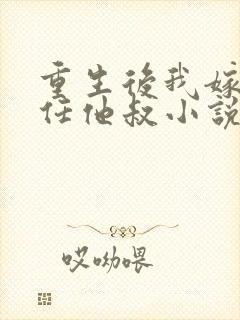 重生後我嫁
任他叔小說
哎呦喂